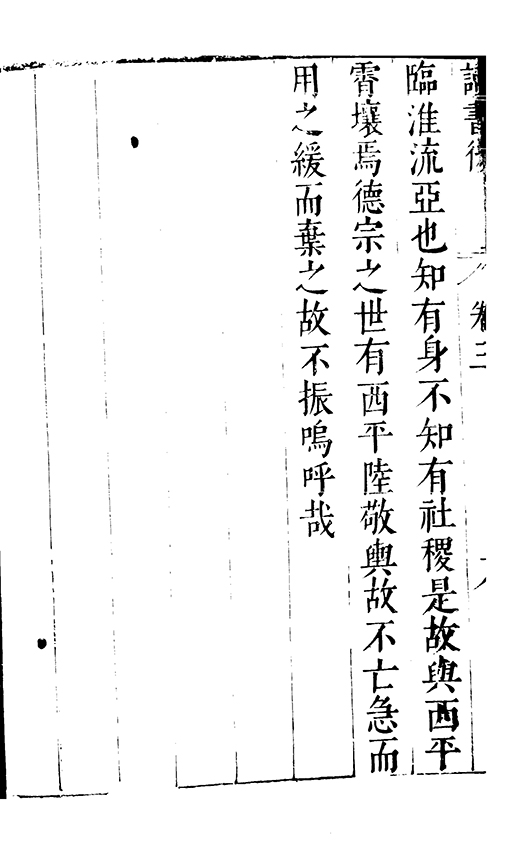 讀書後
卷三
臨淮流亞也知有身不知有社稷是故與西平
霄壤焉德宗之世有西平陸敬輿故不亡急而
用之緩而棄之故不振嗚呼哉